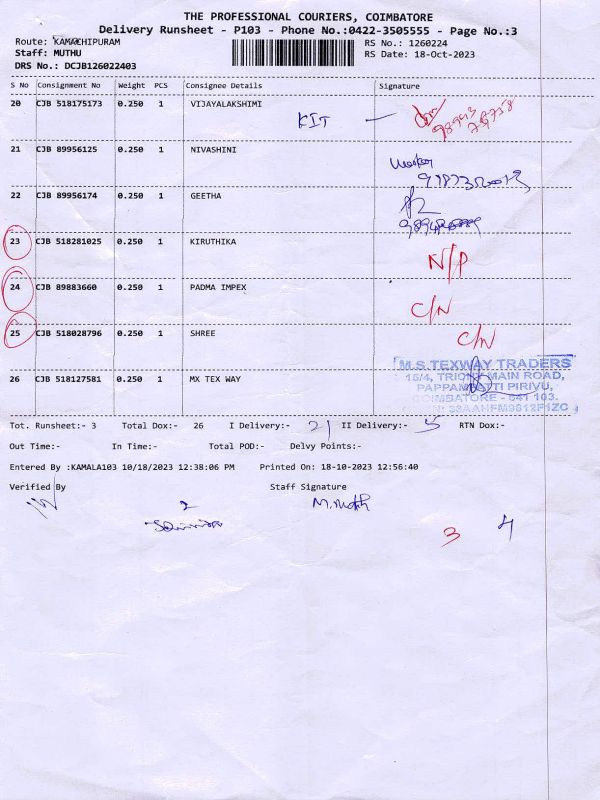 THE PROFESSIONAL COURIERS, COIMBATORE
Delivery Runsheet - P103 - Phone No.:0422-3505555 - Page No.:3
Route: KAMACHIPURAM RS No.: 1260224
Staff: MUTHU RS Date: 18-Oct-2023
DRS No.: DCJB126022403
S No Consignment No Weight PCS Consignee Details Signature
20 CJB 518175173 0.250 1 VIJAYALAKSHIMI
KIT —
21 CJB 89956125 0.250 1 NIVASHINI
22 CJB 89956174 0.250 1 GEETHA
23 CJB 518281025 0.250 1 KIRUTHIKA
N/P
24 CJB 89883660 0.250 1 PADMA IMPEX
C/N
25 CJB 518028796 0.250 1 SHREE
C/N
M.S.TEXWAY TRADERS
15/4, TRICHY MAIN ROAD,
26 CJB 518127581 0.250 1 MX TEX WAY
PAPPAMPATTI PIRIVU,
COIMBATORE - 641 103.
Tot. Runsheet:- 3 Total Dox:- 26 I Delivery:- 21 II Delivery:- 5 RTN Dox:-
Out Time:- In Time:- Total POD:- Delvy Points:-
Entered By :KAMALA103 10/18/2023 12:38:06 PM Printed On: 18-10-2023 12:56:40
Verified By Staff Signature
2
3 4